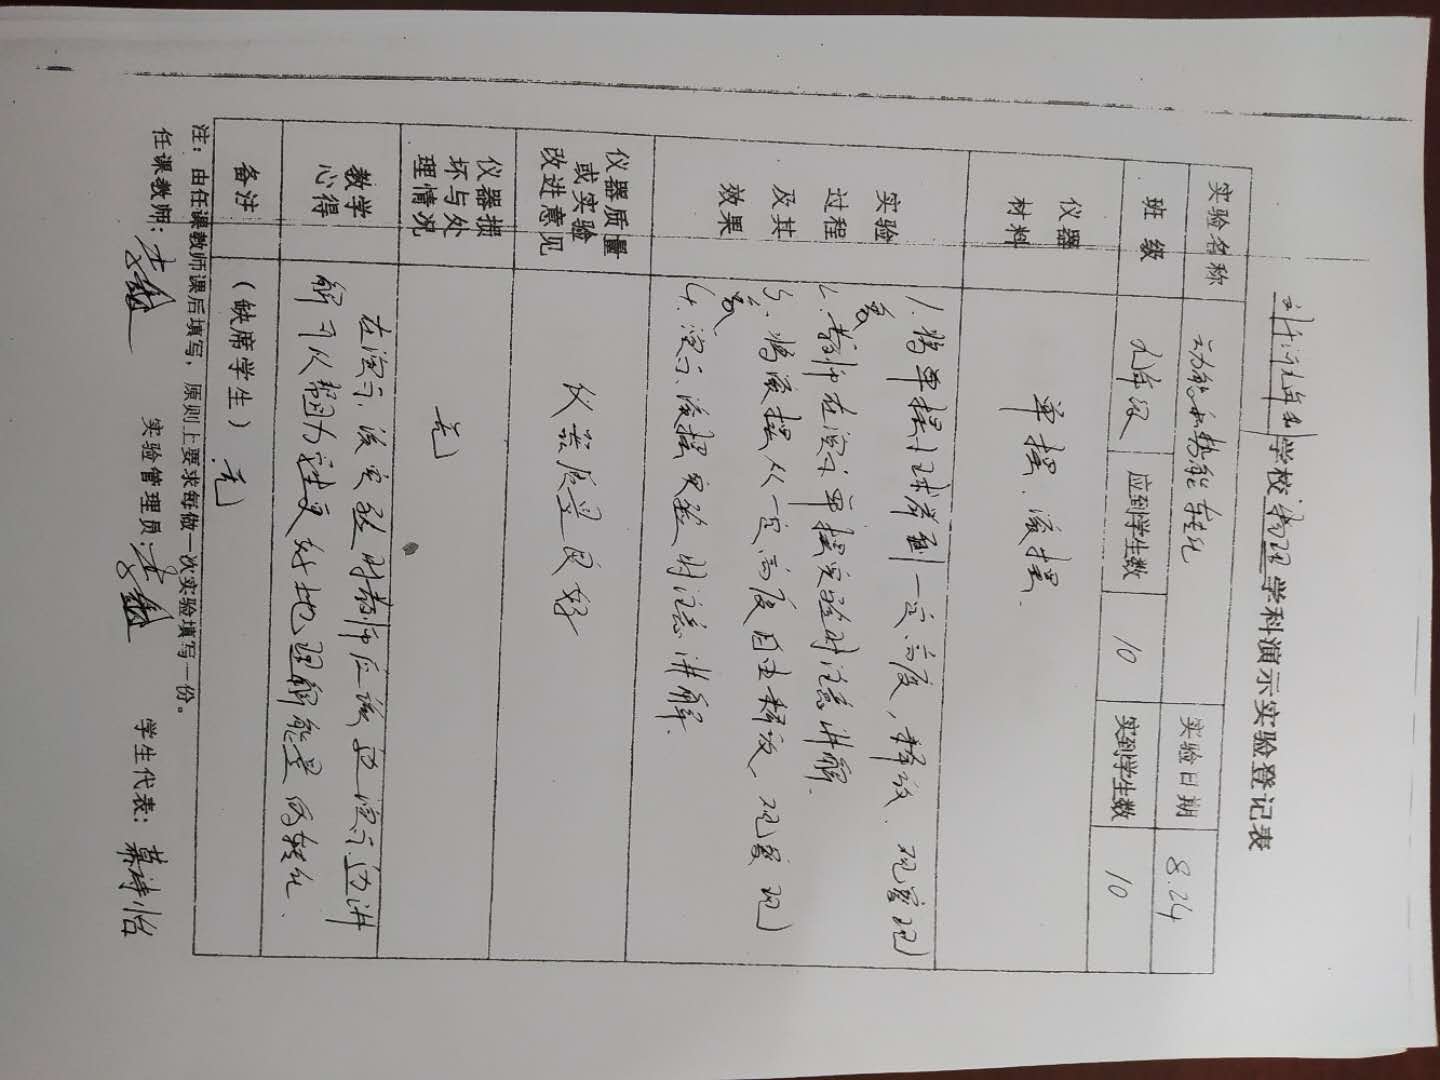 学校物理学科演示实验登记表
实验名称 动能和势能转化 实验日期 8.24
班级 九年级 应到学生数 10 实到学生数 10
仪器
材料
单摆、滚摆.
实验
过程
及其
效果
1.将单摆小球拿到一定高度,释放、观察现
象
2.教师在演示单摆实验时注意讲解.
3.将滚摆从一定高度自由释放、观察现
象
4.演示滚摆实验时注意讲解.
仪器质量
或实验
改进意见
仪器质量良好
仪器损
坏与处
理情况
无
教学
心得
在演示该实验时教师应该边演示边讲
解可以帮助学生更好地理解能量的转化.
备注
(缺席学生) 无
注:由任课教师课后填写,原则上要求每做一次实验填写一份。
任课教师: 实验管理员: 学生代表: 诗怡